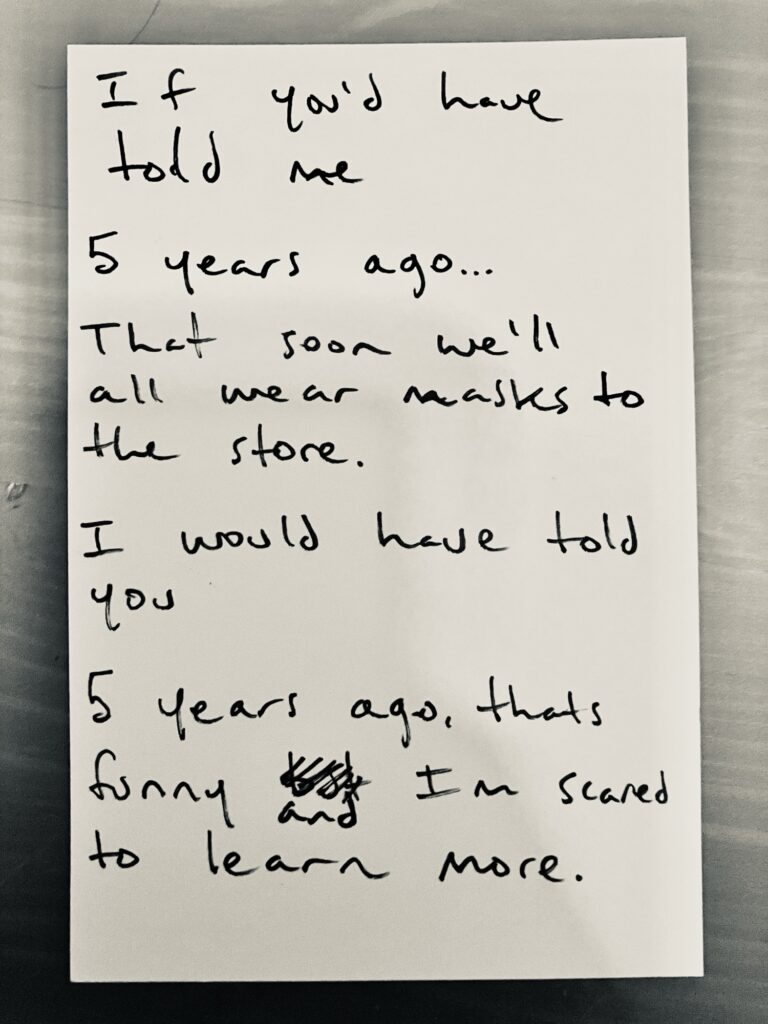 If you'd have
told me
5 years ago...
That soon we'll
all wear masks to
the store.
I would have told
you
5 years ago, thats
funny I'm scared
and
to learn more.